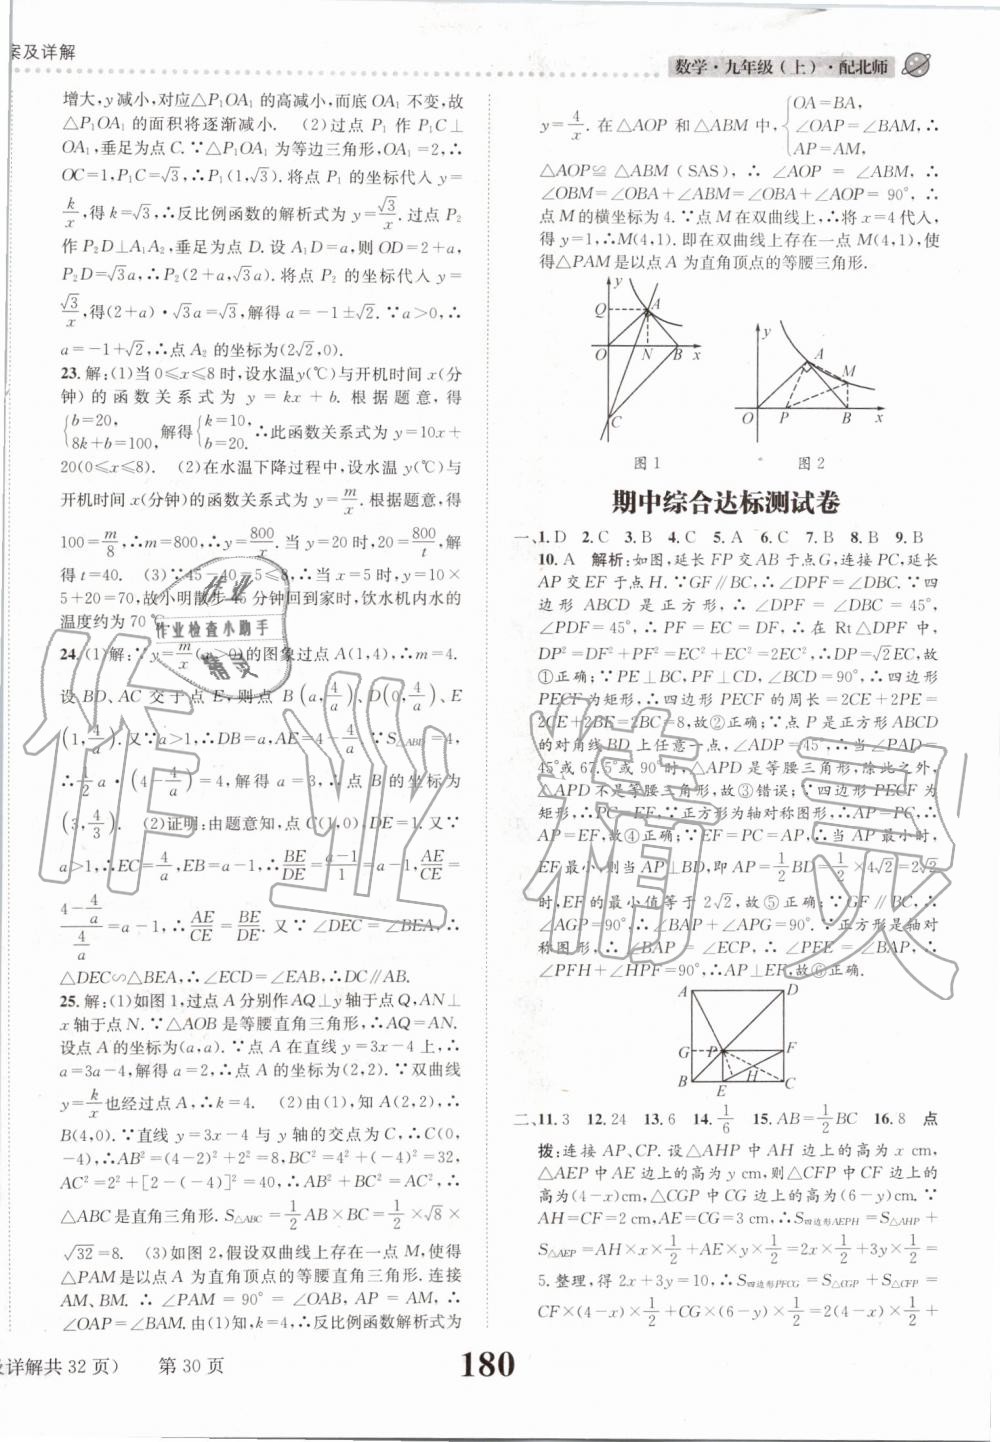 案及详解
数学·九年级(上)·配北师
增大,y减小,对应△P₁OA₁的高减小,而底OA₁不变,故
△P₁OA₁的面积将逐渐减小. (2)过点P₁作P₁C⊥
OA₁,垂足为点C.∵△P₁OA₁为等边三角形,OA₁=2,∴
OC=1,P₁C=√3,∴P₁(1,√3).将点P₁的坐标代入y=
k/x,得k=√3,∴反比例函数的解析式为y=√3/x.过点P₂
作P₂D⊥A₁A₂,垂足为点D.设A₁D=a,则OD=2+a,
P₂D=√3a,∴P₂(2+a,√3a).将点P₂的坐标代入y=
√3/x,得(2+a)·√3a=√3,解得a=-1±√2.∵a>0,∴
a=-1+√2,∴点A₂的坐标为(2√2,0).
23.解:(1)当0≤x≤8时,设水温y(℃)与开机时间x(分
钟)的函数关系式为y=kx+b.根据题意,得
{b=20, 8k+b=100, 解得{k=10, b=20. ∴此函数关系式为y=10x+
20(0≤x≤8). (2)在水温下降过程中,设水温y(℃)与
开机时间x(分钟)的函数关系式为y=m/x.根据题意,得
100=m/8,∴m=800,∴y=800/x.当y=20时,20=800/t,解
得t=40. (3)∵45-40=5≤8,∴当x=5时,y=10×
5+20=70,故小明散步45分钟回到家时,饮水机内水的
温度约为70℃.
24.(1)解:∵y=m/x(x>0)的图象过点A(1,4),∴m=4.
设BD、AC交于点E,则点B(a,4/a)、D(0,4/a)、E
(1,4/a).又∵a>1,∴DB=a,AE=4-4/a.∵S△ABD=4,
∴1/2a·(4-4/a)=4,解得a=3,∴点B的坐标为
(3,4/3). (2)证明:由题意知,点C(1,0),DE=1.又∵
a>1,∴EC=4/a,EB=a-1,∴BE/DE=(a-1)/1=a-1,AE/CE=
(4-4/a)/(4/a)=a-1,∴AE/CE=BE/DE.又∵∠DEC=∠BEA,∴
△DEC∽△BEA,∴∠ECD=∠EAB,∴DC∥AB.
25.解:(1)如图1,过点A分别作AQ⊥y轴于点Q,AN⊥
x轴于点N.∵△AOB是等腰直角三角形,∴AQ=AN.
设点A的坐标为(a,a).∵点A在直线y=3x-4上,∴
a=3a-4,解得a=2,∴点A的坐标为(2,2).∵双曲线
y=k/x也经过点A,∴k=4. (2)由(1),知A(2,2),∴
B(4,0).∵直线y=3x-4与y轴的交点为C,∴C(0,
-4),∴AB²=(4-2)²+2²=8,BC²=4²+4²=32,
AC²=2²+[2-(-4)]²=40,∴AB²+BC²=AC²,∴
△ABC是直角三角形.S△ABC=1/2AB×BC=1/2×√8×
√32=8. (3)如图2,假设双曲线上存在一点M,使得
△PAM是以点A为直角顶点的等腰直角三角形.连接
AM、BM.∴∠PAM=90°=∠OAB,AP=AM,∴
∠OAP=∠BAM.由(1)知,k=4,∴反比例函数解析式为
y=4/x.在△AOP和△ABM中,{OA=BA, ∠OAP=∠BAM, AP=AM, ∴
△AOP≌△ABM(SAS),∴∠AOP=∠ABM,∴
∠OBM=∠OBA+∠ABM=∠OBA+∠AOP=90°,∴
点M的横坐标为4.∵点M在双曲线上,∴将x=4代入,
得y=1,∴M(4,1).即在双曲线上存在一点M(4,1),使
得△PAM是以点A为直角顶点的等腰三角形.
y
Q A
O N B x
C
图1
y
A
M
O P B x
图2
期中综合达标测试卷
一、1.D 2.C 3.B 4.C 5.A 6.C 7.B 8.B 9.B
10.A 解析:如图,延长FP交AB于点G,连接PC,延长
AP交EF于点H.∵GF∥BC,∴∠DPF=∠DBC.∵四
边形ABCD是正方形,∴∠DPF=∠DBC=45°,
∠PDF=45°,∴PF=EC=DF,∴在Rt△DPF中,
DP²=DF²+PF²=EC²+EC²=2EC²,∴DP=√2EC,故
①正确;∵PE⊥BC,PF⊥CD,∠BCD=90°,∴四边形
PECF为矩形,∴四边形PECF的周长=2CE+2PE=
2CE+2BE=2BC=8,故②正确;∵点P是正方形ABCD
的对角线BD上任意一点,∠ADP=45°,∴当∠PAD=
45°或67.5°或90°时,△APD是等腰三角形,除此之外,
△APD不是等腰三角形,故③错误;∵四边形PECF为
矩形,∴PC=EF,∵正方形为轴对称图形,∴AP=PC,∴
AP=EF,故④正确;∵EF=PC=AP,∴当AP最小时,
EF最小,则当AP⊥BD,即AP=1/2BD=1/2×4√2=2√2
时,EF的最小值等于2√2,故⑤正确;∵GF∥BC,∴
∠AGP=90°,∴∠BAP+∠APG=90°.∵正方形是轴对
称图形,∴∠BAP=∠ECP,∴∠PFE=∠BAP,∴
∠PFH+∠HPF=90°,∴AP⊥EF,故⑥正确.
A D
G P F
B E H C
二、11.3 12.24 13.6 14.1/6 15.AB=1/2BC 16.8 点
拨:连接AP、CP.设△AHP中AH边上的高为x cm,
△AEP中AE边上的高为y cm,则△CFP中CF边上的
高为(4-x)cm,△CGP中CG边上的高为(6-y)cm.∵
AH=CF=2 cm,AE=CG=3 cm,∴S四边形AEPH=S△AHP+
S△AEP=AH×x×1/2+AE×y×1/2=2x×1/2+3y×1/2=
5.整理,得2x+3y=10,∴S四边形PFCG=S△CGP+S△CFP=
CF×(4-x)×1/2+CG×(6-y)×1/2=2(4-x)×1/2+
作业
作业检查小助手
精灵
作业精灵
及详解共32页) 第30页
180